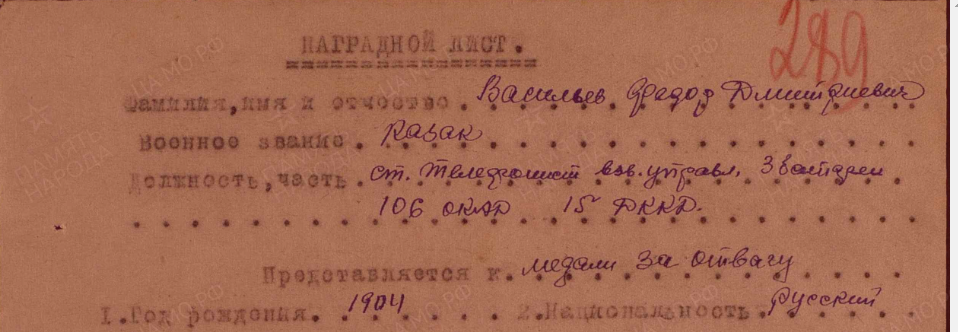 289
НАГРАДНОЙ ЛИСТ.
Фамилия, имя и отчество. Васильев Федор Дмитриевич
Военное звание. Казак
Должность, часть. ст. телефонист взв. управл. 3 батареи
106 ОКАД 15 ДККД.
Представляется к. медали За отвагу
1. Год рождения. 1904 2. Национальность. русский